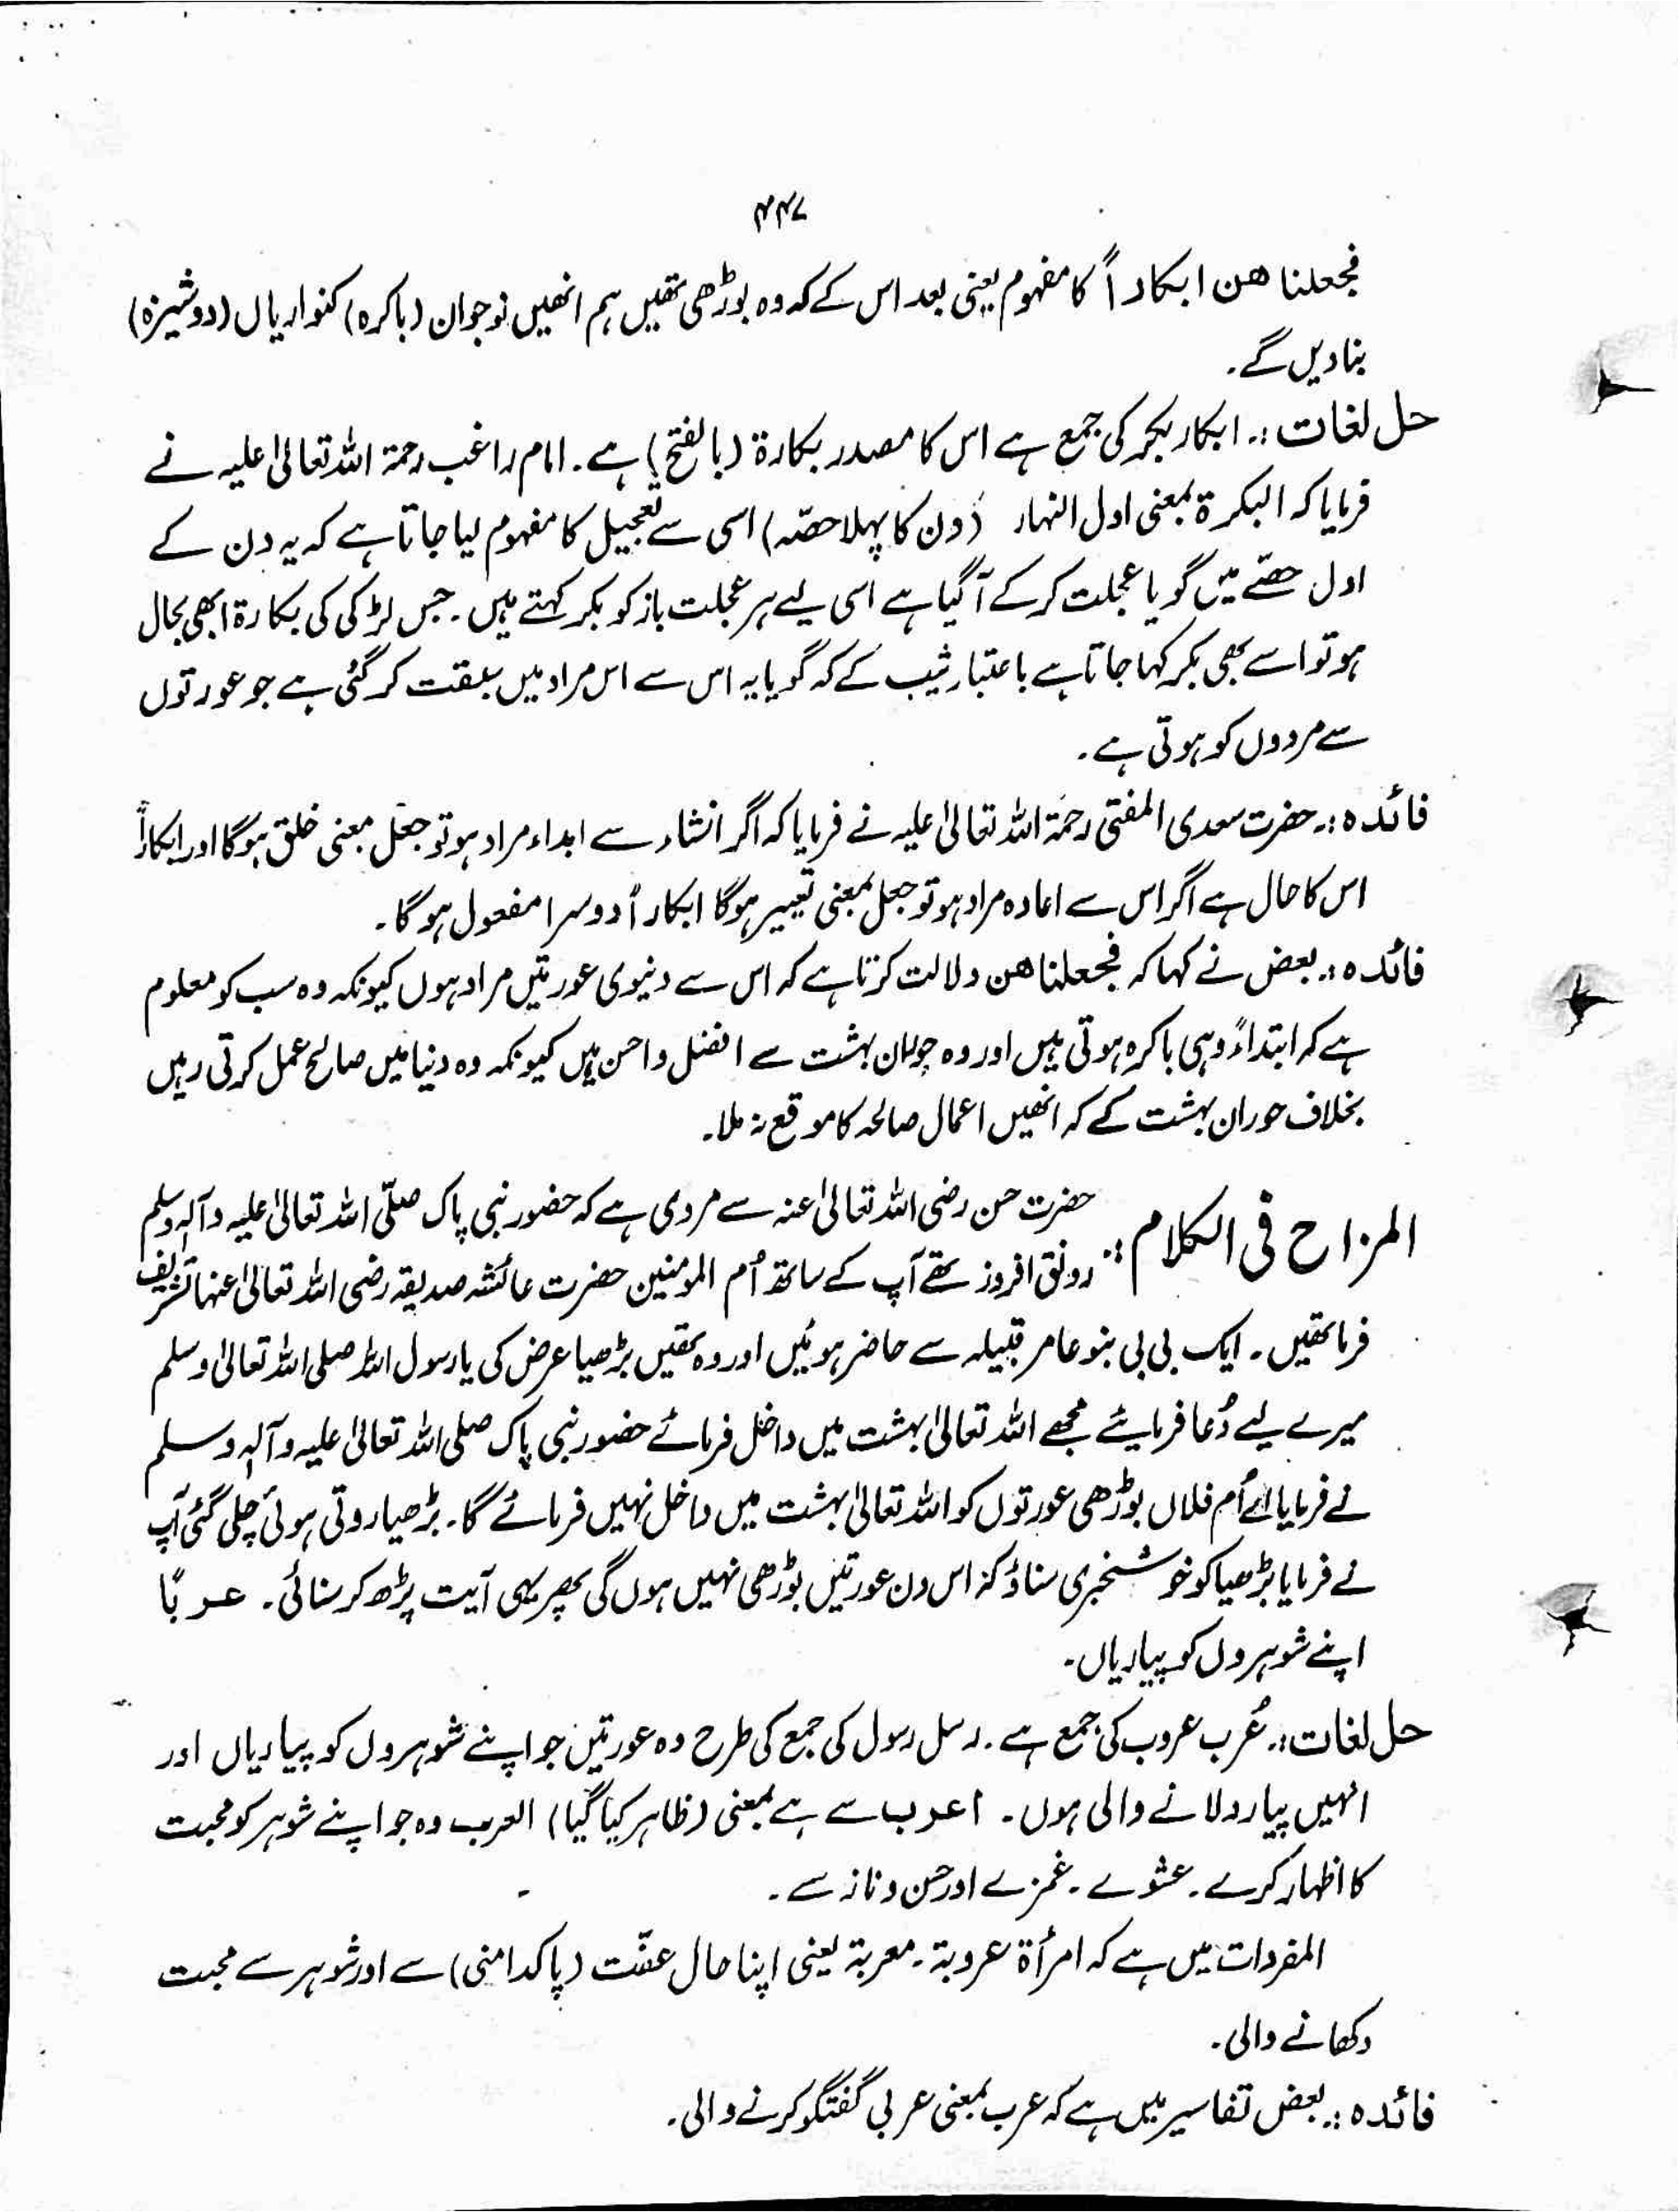 ۴۴۷
فجعلنا ھن ابکاراً کا مفہوم یعنی بعد اس کے کہ وہ بوڑھی تھیں ہم انھیں نوجوان (باکرہ) کنواریاں (دوشیزہ)
بنا دیں گے۔
حل لغات :۔ ابکار بکر کی جمع ہے اس کا مصدر بکارۃ (بالفتح) ہے۔ امام راغب رحمۃ اللہ تعالیٰ علیہ نے
فرمایا کہ البکرۃ بمعنی اول النہار (دن کا پہلا حصّہ) اسی سے تعجیل کا مفہوم لیا جاتا ہے کہ یہ دن کے
اول حصّے میں گویا عجلت کر کے آ گیا ہے اسی لیے ہر عجلت باز کو بکر کہتے ہیں۔ جس لڑکی کی بکارۃ ابھی بحال
ہو تو اسے بھی بکر کہا جاتا ہے باعتبار ثیب کے کہ گویا یہ اس سے اس مراد میں سبقت کر گئی ہے جو عورتوں
سے مردوں کو ہوتی ہے۔
فائدہ :۔ حضرت سعدی المفتی رحمۃ اللہ تعالیٰ علیہ نے فرمایا کہ اگر انشاء سے ابداء مراد ہو تو جعل بمعنی خلق ہوگا اور ابکاراً
اس کا حال ہے اگر اس سے اعادہ مراد ہو تو جعل بمعنی تعییر ہوگا ابکاراً دوسرا مفعول ہوگا۔
فائدہ :۔ بعض نے کہا کہ فجعلنا ھن دلالت کرتا ہے کہ اس سے دنیوی عورتیں مراد ہوں کیونکہ وہ سب کو معلوم
ہے کہ ابتداءً وہی باکرہ ہوتی ہیں اور وہ حوران بہشت سے افضل و احسن ہیں کیونکہ وہ دنیا میں صالح عمل کرتی رہیں
بخلاف حوران بہشت کے کہ انھیں اعمال صالحہ کا موقع نہ ملا۔
المزاح فی الکلام :۔ حضرت حسن رضی اللہ تعالیٰ عنہ سے مروی ہے کہ حضور نبی پاک صلّی اللہ تعالیٰ علیہ وآلہٖ وسلم
رونق افروز تھے آپ کے ساتھ اُم المؤمنین حضرت عائشہ صدیقہ رضی اللہ تعالیٰ عنہا تشریف
فرما تھیں۔ ایک بی بی بنو عامر قبیلہ سے حاضر ہوئیں اور وہ تھیں بڑھیا عرض کی یا رسول اللہ صلی اللہ تعالیٰ وسلم
میرے لیے دُعا فرمایئے مجھے اللہ تعالیٰ بہشت میں داخل فرمائے حضور نبی پاک صلی اللہ تعالیٰ علیہ وآلہٖ وسلم
نے فرمایا اے اُم فلاں بوڑھی عورتوں کو اللہ تعالیٰ بہشت میں داخل نہیں فرمائے گا۔ بڑھیا روتی ہوئی چلی گئی آپ
نے فرمایا بڑھیا کو خوشخبری سناؤ کہ اس دن عورتیں بوڑھی نہیں ہوں گی پھر یہی آیت پڑھ کر سنائی۔ عربًا
اپنے شوہروں کو پیاریاں۔
حل لغات :۔ عُرب عروب کی جمع ہے۔ رسل رسول کی جمع کی طرح وہ عورتیں جو اپنے شوہروں کو پیاریاں اور
انہیں پیار دلانے والی ہوں۔ اعرب سے ہے بمعنی (ظاہر کیا گیا) العرب وہ جو اپنے شوہر کو محبت
کا اظہار کرے۔ عشوے۔ غمزے اور حسن و ناز سے۔
المفردات میں ہے کہ امرأۃ عروبۃ۔ معربۃ یعنی اپنا حال عفّت (پاکدامنی) سے اور شوہر سے محبت
دکھانے والی۔
فائدہ :۔ بعض تفاسیر میں ہے کہ عرب بمعنی عربی گفتگو کرنے والی۔